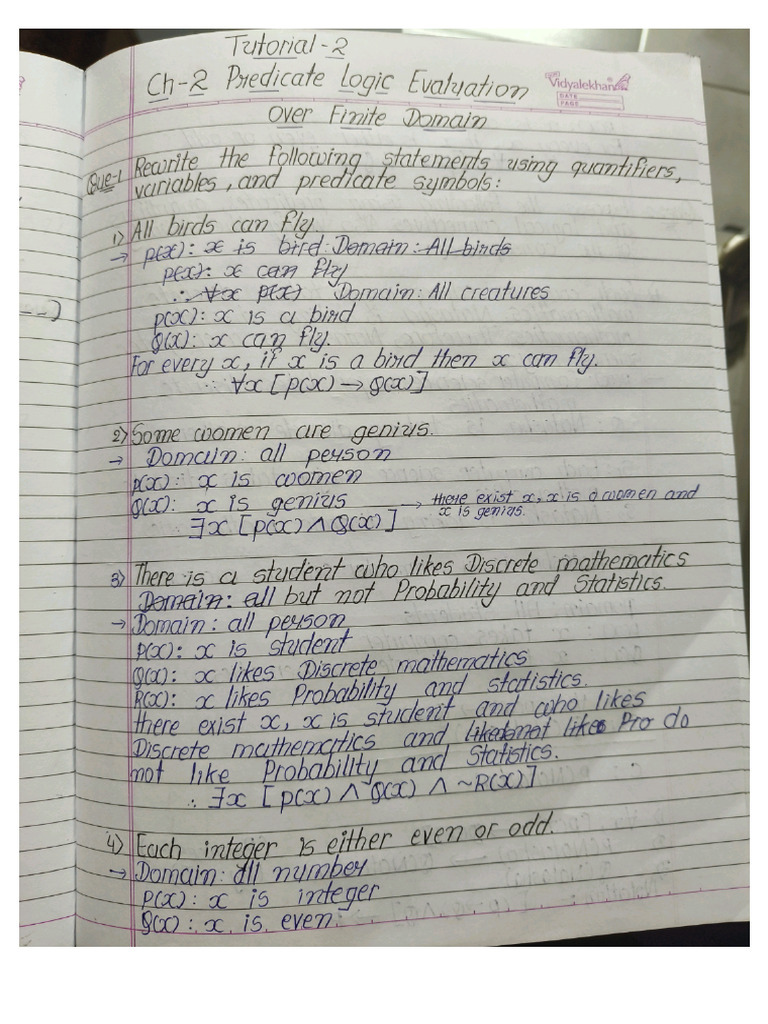 Tutorial-2
Ch-2 Predicate Logic Evaluation
Over Finite Domain
Vidyalekhan
DATE
PAGE
Que-1 Rewrite the following statements using quantifiers,
variables, and predicate symbols:
1) All birds can fly.
→ P(x): x is bird Domain: All birds
P(x): x can fly
∴ ∀x P(x) Domain: All creatures
P(x): x is a bird
Q(x): x can fly.
For every x, if x is a bird then x can fly.
∴ ∀x [P(x) → Q(x)]
2) Some women are genius.
→ Domain: all person
P(x): x is women
Q(x): x is genius → there exist x, x is a women and
x is genius.
∃x [P(x) ∧ Q(x)]
3) There is a student who likes Discrete mathematics
Domain: all but not Probability and Statistics.
→ Domain: all person
P(x): x is student
Q(x): x likes Discrete mathematics
R(x): x likes Probability and statistics.
there exist x, x is student and who likes
Discrete mathematics and like Pro do
not like Probability and Statistics.
∴ ∃x [P(x) ∧ Q(x) ∧ ~R(x)]
4) Each integer is either even or odd.
→ Domain: all number
P(x): x is integer
Q(x): x is even.